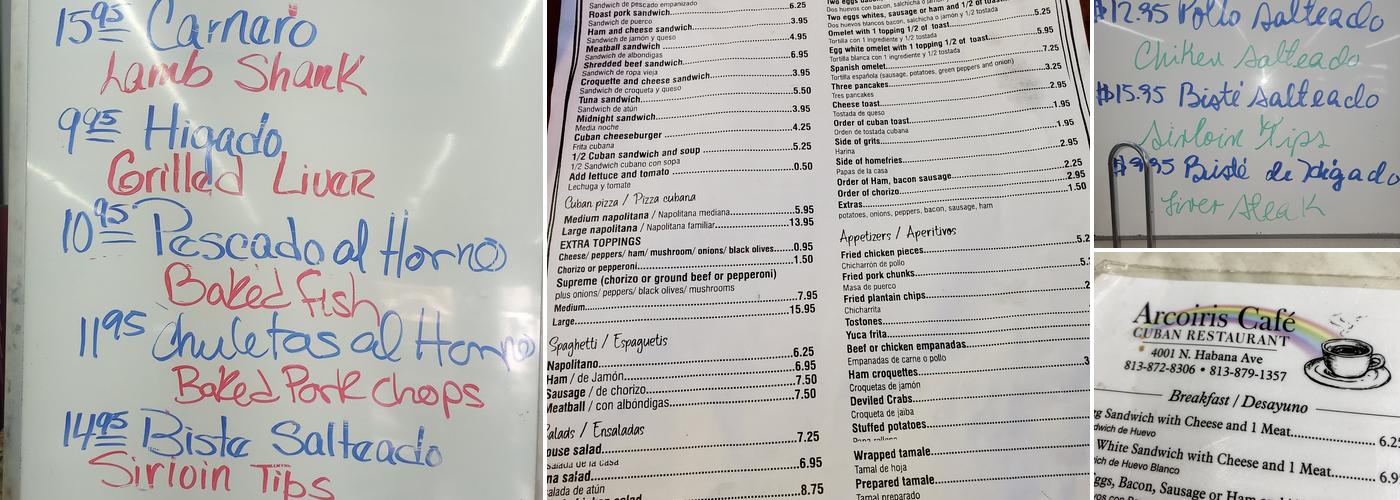 15.95 Carnero
Lamb Shank
9.95 Higado
Grilled Liver
10.95 Pescado al Horno
Baked fish
11.95 Chuletas al Horno
Baked Pork Chops
14.95 Biste Salteado
Sirloin Tips
Sandwich de pescado empanizado
Roast pork sandwich 6.25
Sandwich de puerco
Ham and cheese sandwich 3.95
Sandwich de jamón y queso
Meatball sandwich 4.95
Sandwich de albondigas
Shredded beef sandwich 6.95
Sandwich de ropa vieja
Croquette and cheese sandwich 3.95
Sandwich de croqueta y queso
Tuna sandwich 5.50
Sandwich de atún
Midnight sandwich 3.95
Media noche
Cuban cheeseburger 4.25
Frita cubana
1/2 Cuban sandwich and soup 5.25
1/2 Sandwich cubano con sopa
Add lettuce and tomato 0.50
Lechuga y tomate
Cuban pizza / Pizza cubana
Medium napolitana / Napolitana mediana 5.95
Large napolitana / Napolitana familiar 13.95
EXTRA TOPPINGS
Cheese/ peppers/ ham/ mushroom/ onions/ black olives 0.95
Chorizo or pepperoni 1.50
Supreme (chorizo or ground beef or pepperoni)
plus onions/ peppers/ black olives/ mushrooms
Medium 7.95
Large 15.95
Spaghetti / Espaguetis
Napolitano 6.25
Ham / de Jamón 6.95
Sausage / de chorizo 7.50
Meatball / con albóndigas 7.50
Salads / Ensaladas
ouse salad 7.25
salada de la casa
na salad 6.95
alada de atún
8.75
Dos huevos con bacon, salchicha o jamón y
Two eggs whites, sausage or ham and 1/2 of toast
Dos huevos blancos bacon, salchicha o jamón y 1/2 tostada
Omelet with 1 topping 1/2 of toast 5.25
Tortilla con 1 ingrediente y 1/2 tostada
Egg white omelet with 1 topping 1/2 of toast 5.95
Tortilla blanca con 1 ingrediente y 1/2 tostada
Spanish omelet 7.25
Tortilla española (sausage, potatoes, green peppers and onion)
Three pancakes 3.25
Tres pancakes
Cheese toast 2.95
Tostada de queso
Order of cuban toast 1.95
Orden de tostada cubana
Side of grits 1.95
Harina
Side of homefries 2.95
Papas de la casa
Order of Ham, bacon sausage 2.25
Order of chorizo 2.95
Extras 1.50
potatoes, onions, peppers, bacon, sausage, ham
Appetizers / Aperitivos
Fried chicken pieces 5.2
Chicharrón de pollo
Fried pork chunks 5.
Masa de puerco
Fried plantain chips 2
Chicharrita
Tostones
Yuca frita
Beef or chicken empanadas
Empanadas de carne o pollo
Ham croquettes 3
Croquetas de jamón
Deviled Crabs
Croqueta de jaiba
Stuffed potatoes
Papa rellena
Wrapped tamale
Tamal de hoja
Prepared tamale
Tamal preparado
$12.95 Pollo Salteado
Chiken Salteado
$15.95 Bisté Salteado
Sirloin Tips
$9.95 Bisté de Hígado
Liver Steak
Arcoiris Café
CUBAN RESTAURANT
4001 N. Habana Ave
813-872-8306 • 813-879-1357
Breakfast / Desayuno
g Sandwich with Cheese and 1 Meat 6.25
dwich de Huevo
White Sandwich with Cheese and 1 Meat 6.9
ich de Huevo Blanco
ggs, Bacon, Sausage or Ham